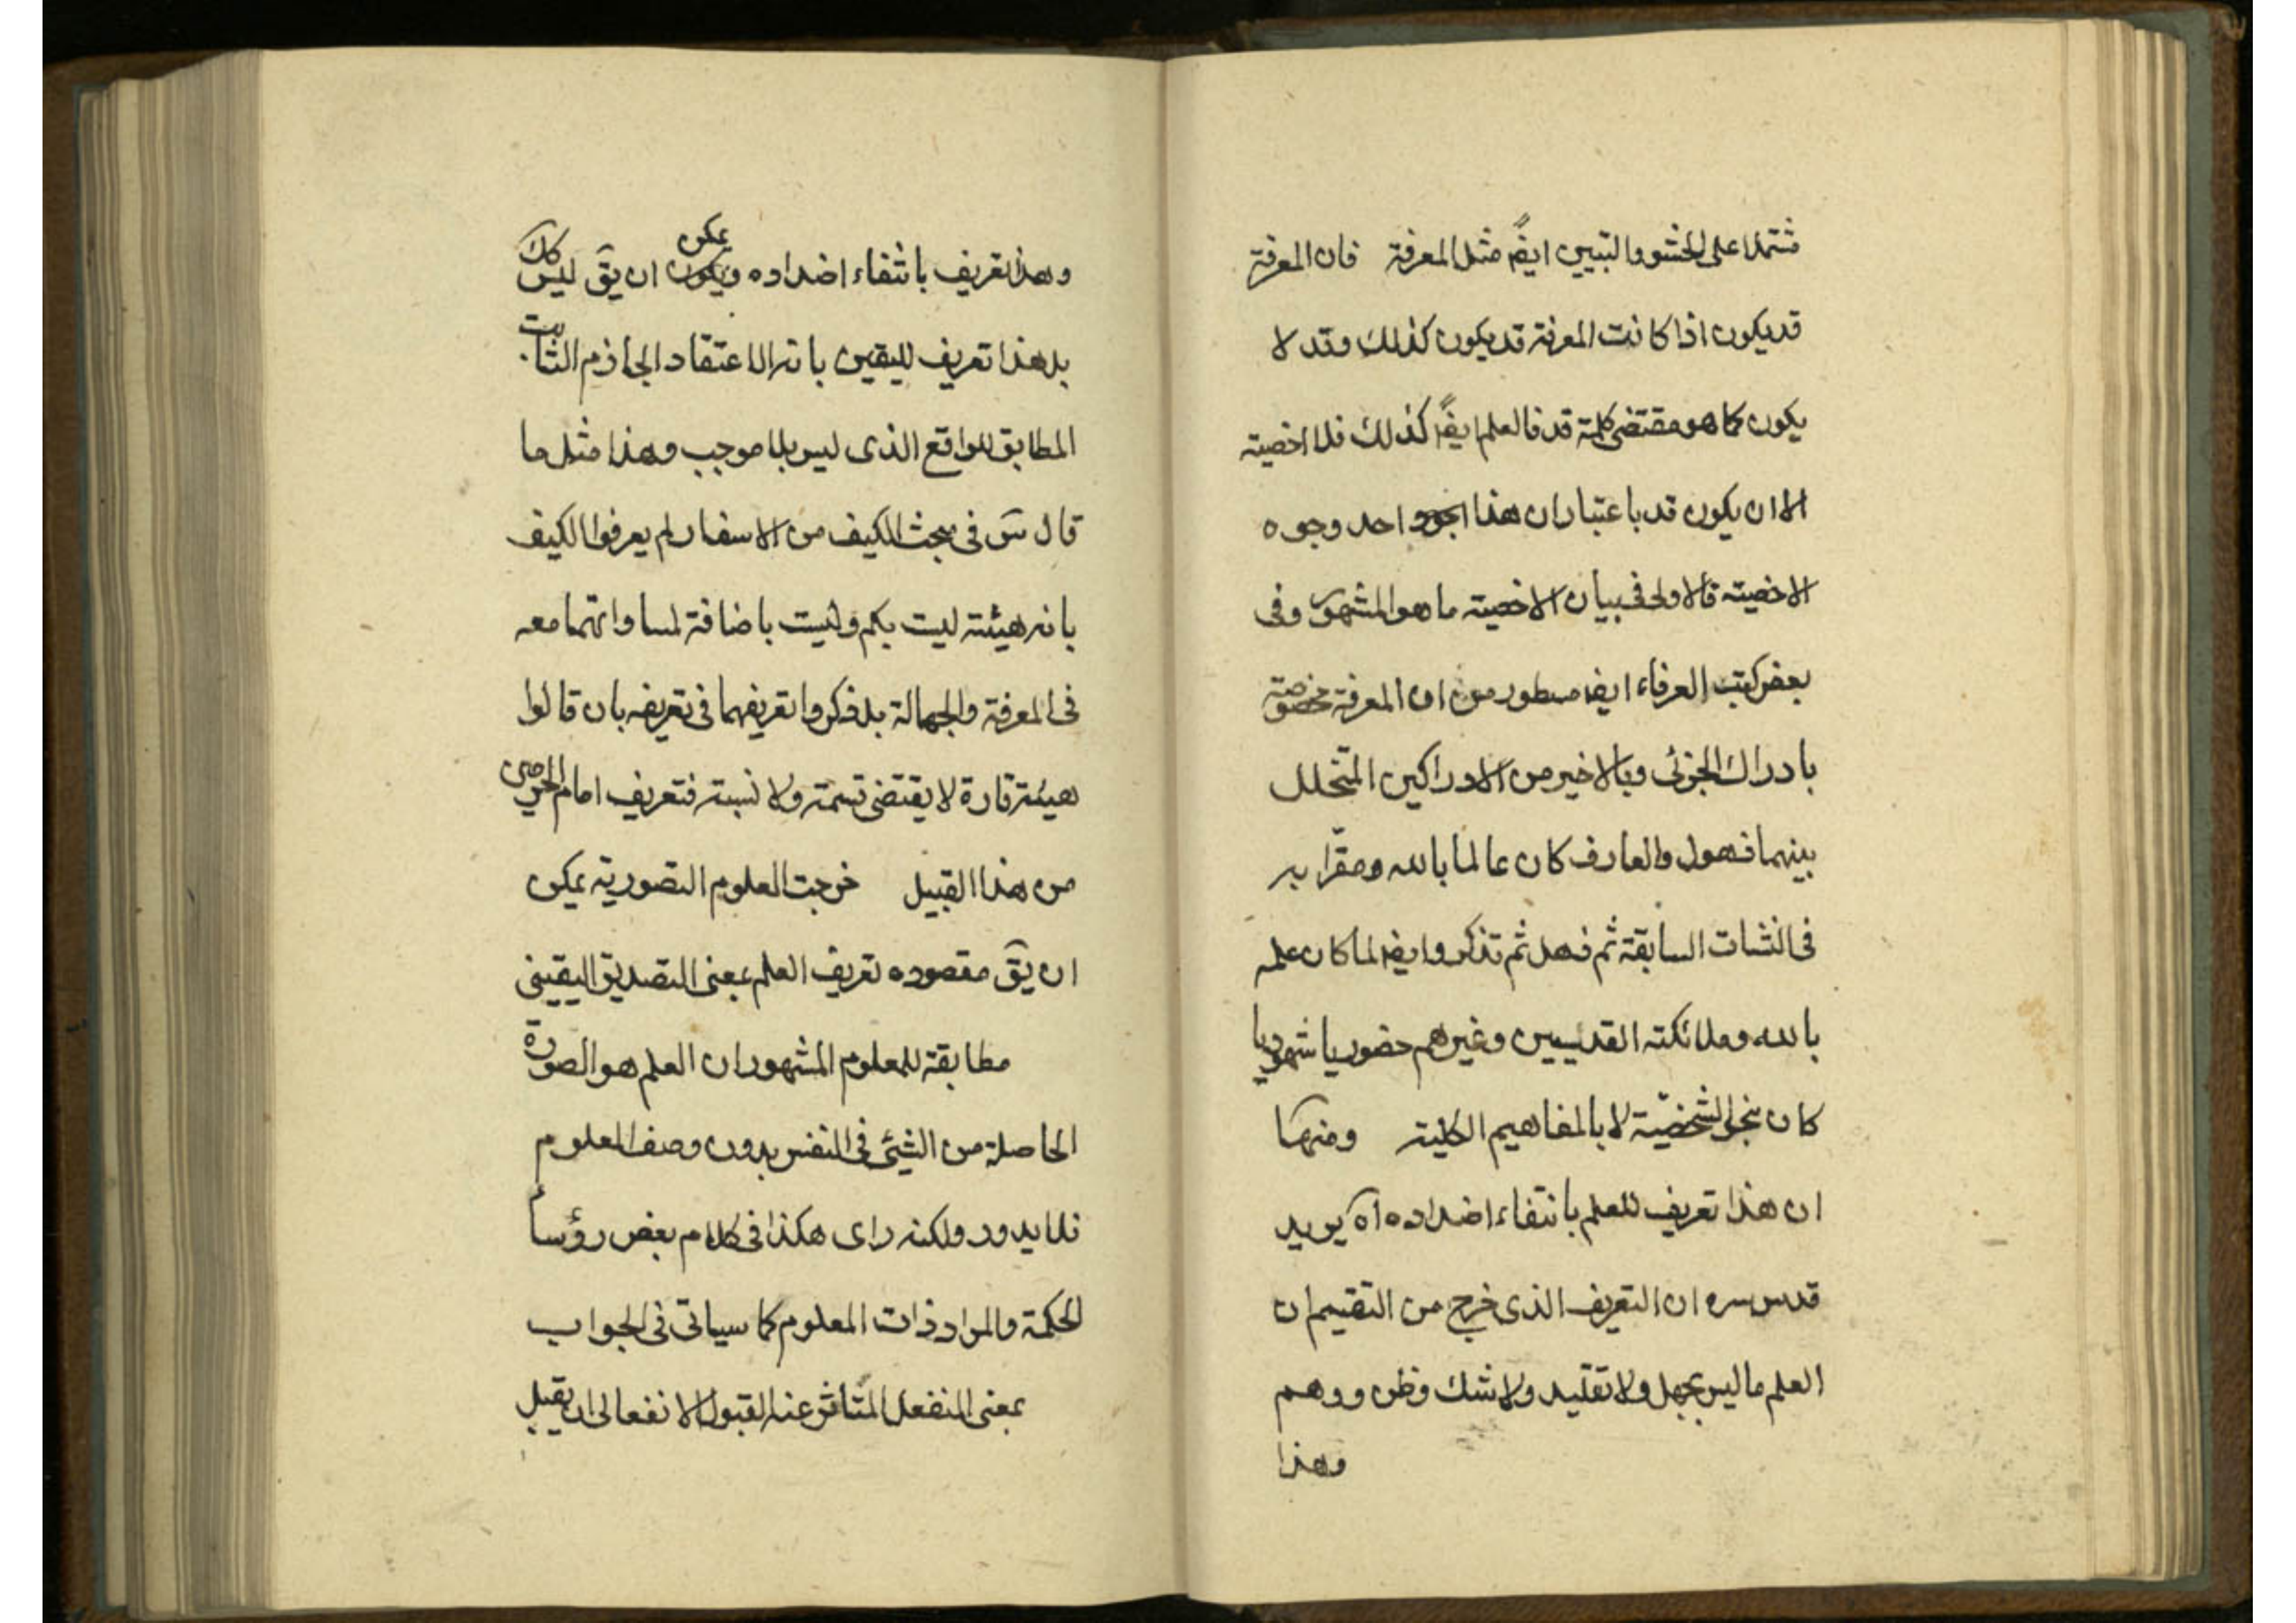 مشتملا على الحشو والتبيين ايضً مثل المعرفة فان المعرفة
قد يكون اذا كانت المعرفة قد يكون كذلك وقد لا
يكون كما هو مقتضى كلمة قد فالعلم ايضً كذلك فلا اخصية
الا ان يكون قد باعتبار ان هذا احد وجوه
الاخصية فالاولى فى بيان الاخصية ما هو المشهور وفى
بعض كتب العرفاء ايضا مسطور من ان المعرفة مختصة
بادراك الجزئى وبالاخير من الادراكين المتخلل
بينهما ذهول والعارف كان عالما بالله ومقرّا به
فى النشات السابقة ثم ذهل ثم تذكر وايضا لما كان علمه
بالله وملائكته القديسين وغيرهم حضوريا شهوديا
كان بنحو الشخصيّة لا بالمفاهيم الكلية ومنها
ان هذا تعريف للعلم بانتفاء اضداده اه يريد
قدس سره ان التعريف الذى خرج من التقسيم ان
العلم ما ليس بجهل ولا تقليد ولا شك وظن ووهم
وهذا
وهذا تعريف بانتفاء اضداده ويمكن ان يقَ ليس كك
بل هذا تعريف لليقين بانه الاعتقاد الجازم الثابت
المطابق للواقع الذى ليس بلا موجب وهذا مثل ما
قال سَ فى مبحث الكيف من الاسفار لم يعرفوا الكيف
بانه هيئة ليت بكم وليست باضافة لمساواتهما معه
فى المعرفة والجهالة بل ذكروا تعريفهما فى تعريفه بان قالوا
هيئة قارة لا يقتضى قسمة ولا نسبة فتعريف امام الحرمين
من هذا القبيل خرجت العلوم التصورية يمكن
ان يقَ مقصوده تعريف العلم بمعنى التصديق اليقينى
مطابقة للمعلوم المشهور ان العلم هو الصورة
الحاصلة من الشيئ فى النفس بدون وصف المعلوم
فلا يدور ولكنه راى هكذا فى كلام بعض رؤساء
الحكمة والمراد ذات المعلوم كما سياتى فى الجواب
بمعنى المنفعل المتاثر عنه القبول الانفعالى ان يقبل